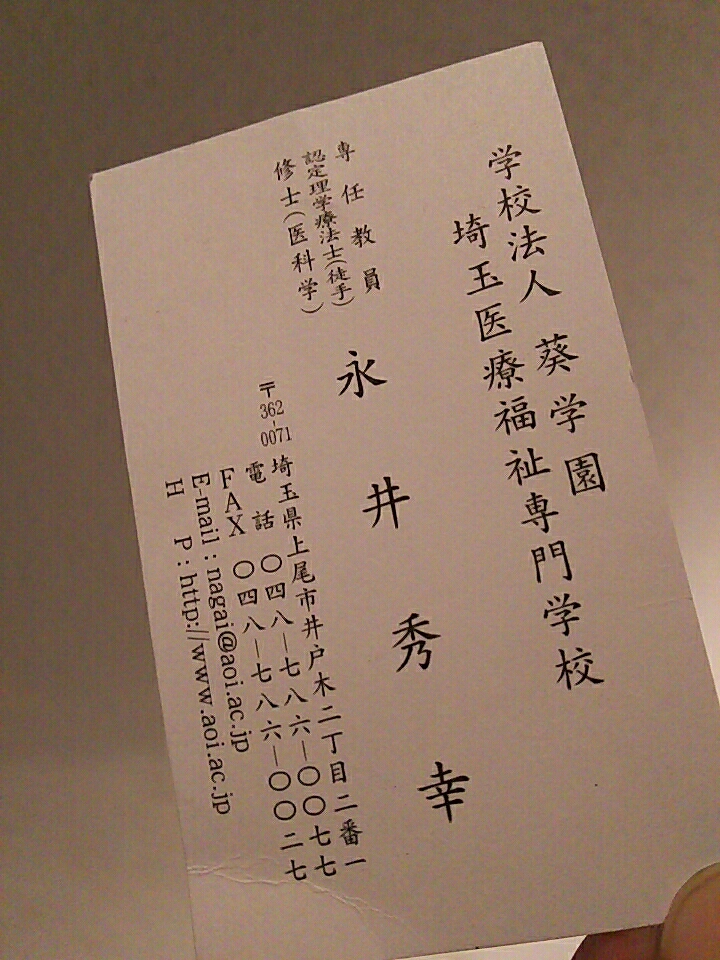 学校法人 葵学園
埼玉医療福祉専門学校
専任教員
認定理学療法士(徒手)
修士(医科学)
永井秀幸
〒362-0071 埼玉県上尾市井戸木二丁目二番一
電話 〇四八―七八六―〇〇七七
FAX 〇四八―七八六―〇〇二七
E-mail : nagai@aoi.ac.jp
H P : http://www.aoi.ac.jp